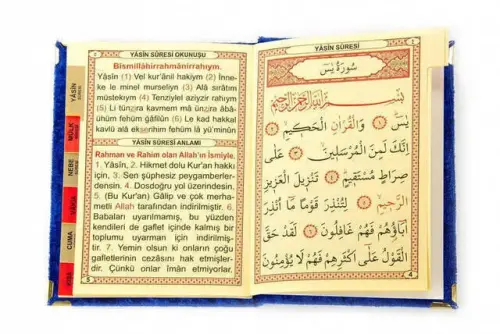 YÂSÎN SÛRESİ
سُورَةُ يٰسٓ
بِسْمِ اللّٰهِ الرَّحْمٰنِ الرَّحِيمِ
يٰسٓ ﴿١﴾ وَالْقُرْاٰنِ الْحَكِيمِ ﴿٢﴾
اِنَّكَ لَمِنَ الْمُرْسَلِينَ ﴿٣﴾ عَلٰى
صِرَاطٍ مُسْتَقِيمٍ ﴿٤﴾ تَنْزِيلَ الْعَزِيزِ
الرَّحِيمِ ﴿٥﴾ لِتُنْذِرَ قَوْمًا مَٓا اُنْذِرَ
اٰبَٓاؤُهُمْ فَهُمْ غَافِلُونَ ﴿٦﴾ لَقَدْ حَقَّ
الْقَوْلُ عَلٰٓى اَكْثَرِهِمْ فَهُمْ لَا يُؤْمِنُونَ
4
YÂSÎN SÛRESİ OKUNUŞU
Bismillâhirrahmânirrahıym.
Yâsîn (1) Vel kur'ânil hakiym (2) İnne-
ke le minel murseliyn (3) Alâ sırâtım
müstekıym (4) Tenziylel aziyzir rahıym
(5) Li tünzira kavmem mâ ünzira âbâ-
ühüm fehüm ğâfilûn (6) Le kad hakkal
kavlü alâ ekserihim fehüm lâ yü'minûn
YÂSÎN SÛRESİ ANLAMI
Rahman ve Rahim olan Allah'ın İsmiyle.
1. Yâsîn, 2. Hikmet dolu Kur'an hakkı
için, 3. Sen şüphesiz peygamberler-
densin. 4. Dosdoğru yol üzerindesin.
5. (Bu Kur'an) Gâlip ve çok merha-
metli Allah tarafından indirilmiştir. 6.
Babaları uyarılmamış, bu yüzden
kendileri de gaflet içinde kalmış bir
toplumu uyarman için indirilmiş-
tir. 7. Yemin olsun ki onların çoğu
gafletlerinin cezasını hak etmişler-
dir. Çünkü onlar îman etmiyorlar.
5
YÂSÎN
MÜLK
NEBE
CUMA